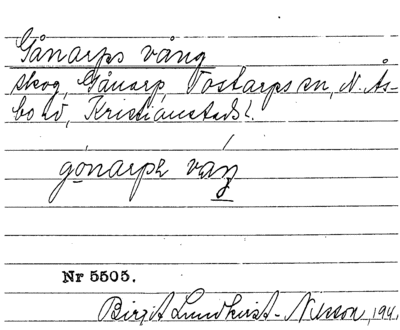 Gånarps vång
skog, Gånarp, Tostarps sn, N. Ås-
bo hd, Kristianstads l.
gónarps váŋ
Nr 5505.
Birgit Lundkvist-Nilsson, 194